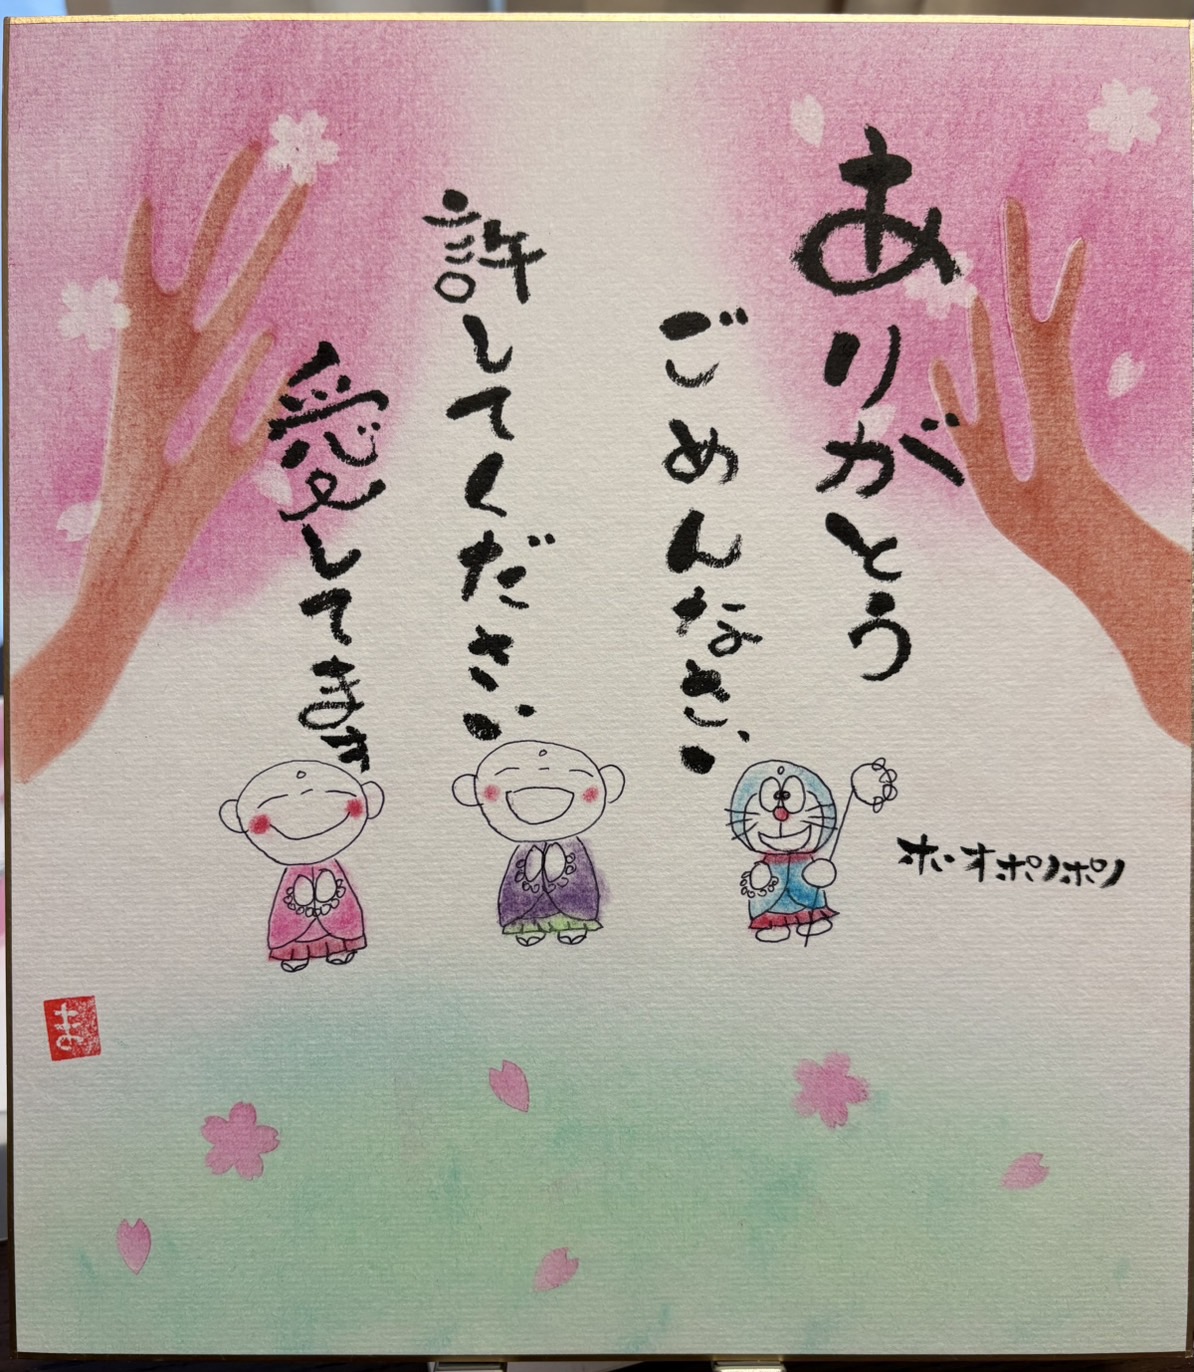 ありがとう
ごめんなさい
許してください
愛してます
ホ・オポノポノ
ま